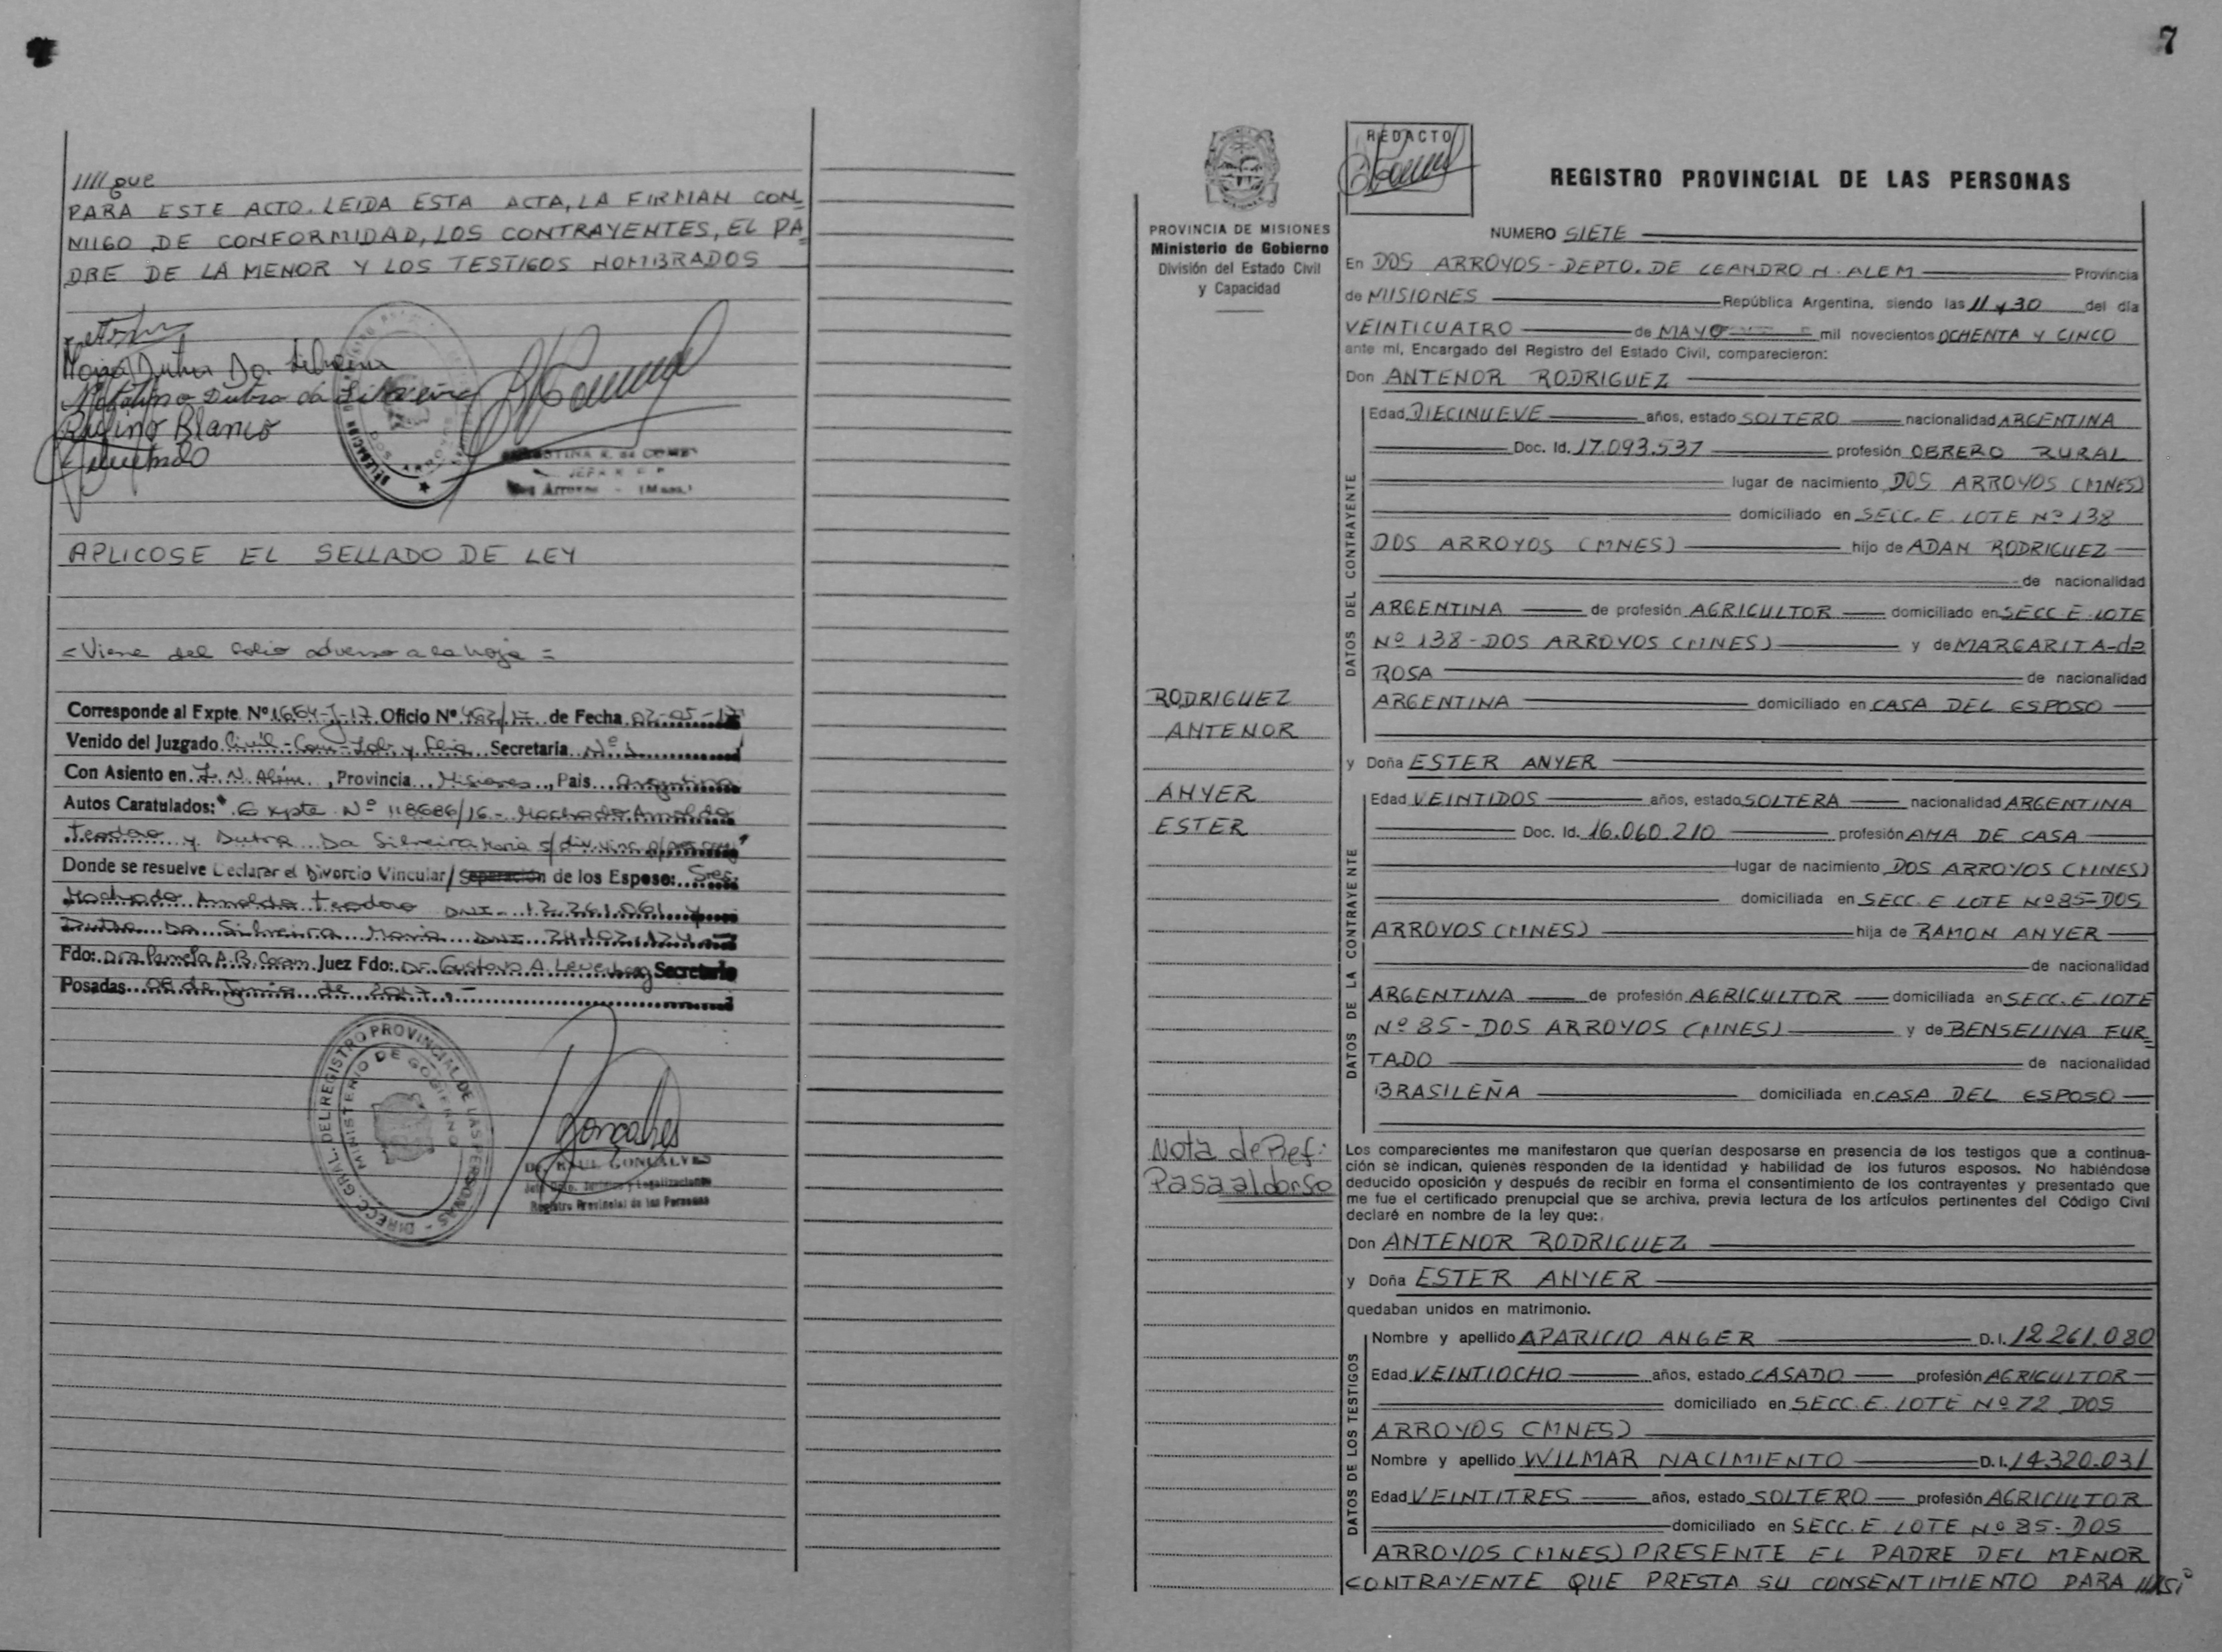 //// que
PARA ESTE ACTO. LEIDA ESTA ACTA, LA FIRMAN CON_
MIGO DE CONFORMIDAD, LOS CONTRAYENTES, EL PA_
DRE DE LA MENOR Y LOS TESTIGOS NOMBRADOS
Dutra Da Silveira
Dutra da Silveira
Rufino Blanco
DELEGACION
DOS ARROYOS
JEFA R.
Dos Arroyos - (Mnes.)
APLICOSE EL SELLADO DE LEY
= Viene del folio adverso a la hoja =
Corresponde al Expte. Nº 1664-J-17 Oficio Nº 462/17 de Fecha 02-05-17
Venido del Juzgado Civil-Com-Lab y Flia Secretaria Nº 1
Con Asiento en L. N. Alem, Provincia Misiones, Pais Argentina
Autos Caratulados: " Expte Nº 118686/16 - Machado Arnoldo
Teodoro y Dutra Da Silveira Maria s/div. vinc. p/pres. conj"
Donde se resuelve Declarar el Divorcio Vincular/Separación de los Esposo: Sres.
Machado Arnoldo Teodoro DNI- 12.261.061 y
Dutra Da Silveira Maria DNI
Fdo: Dra Pamela A.B. Juez Fdo: Dr Gustavo A. Secretario
Posadas 08 de Junio de 2017.-
DIRECC. GRAL. DEL REGISTRO PROVINCIAL DE LAS PERSONAS -
MINISTERIO DE GOBIERNO
Goncalves
Dr. RAUL GONCALVES
Jefe Dpto. Jurídico y Legalizaciones
Registro Provincial de las Personas
7
REDACTO
REGISTRO PROVINCIAL DE LAS PERSONAS
PROVINCIA DE MISIONES
Ministerio de Gobierno
División del Estado Civil
y Capacidad
NUMERO SIETE
En DOS ARROYOS - DEPTO. DE LEANDRO N. ALEM Provincia
de MISIONES República Argentina, siendo las 11 y 30 del día
VEINTICUATRO de MAYO mil novecientos OCHENTA Y CINCO
ante mí, Encargado del Registro del Estado Civil, comparecieron:
Don ANTENOR RODRIGUEZ
DATOS DEL CONTRAYENTE
Edad DIECINUEVE años, estado SOLTERO nacionalidad ARGENTINA
Doc. Id. 17.093.537 profesión OBRERO RURAL
lugar de nacimiento DOS ARROYOS (MNES)
domiciliado en SECC. E. LOTE Nº 138
DOS ARROYOS (MNES) hijo de ADAN RODRIGUEZ
de nacionalidad
ARGENTINA de profesión AGRICULTOR domiciliado en SECC. E. LOTE
Nº 138 - DOS ARROYOS (MNES) y de MARGARITA-da
ROSA de nacionalidad
ARGENTINA domiciliado en CASA DEL ESPOSO
RODRIGUEZ
ANTENOR
ANYER
ESTER
y Doña ESTER ANYER
DATOS DE LA CONTRAYENTE
Edad VEINTIDOS años, estado SOLTERA nacionalidad ARGENTINA
Doc. Id. 16.060.210 profesión AMA DE CASA
lugar de nacimiento DOS ARROYOS (MNES)
domiciliada en SECC. E LOTE Nº 85 - DOS
ARROYOS (MNES) hija de RAMON ANYER
de nacionalidad
ARGENTINA de profesión AGRICULTOR domiciliada en SECC. E. LOTE
Nº 85 - DOS ARROYOS (MNES) y de BENSELINA FUR_
TADO de nacionalidad
BRASILEÑA domiciliada en CASA DEL ESPOSO
Nota de Ref:
Pasa al dorso
Los comparecientes me manifestaron que querían desposarse en presencia de los testigos que a continua-
ción se indican, quienes responden de la identidad y habilidad de los futuros esposos. No habiéndose
deducido oposición y después de recibir en forma el consentimiento de los contrayentes y presentado que
me fue el certificado prenupcial que se archiva, previa lectura de los artículos pertinentes del Código Civil
declaré en nombre de la ley que:
Don ANTENOR RODRIGUEZ
y Doña ESTER ANYER
quedaban unidos en matrimonio.
DATOS DE LOS TESTIGOS
Nombre y apellido APARICIO ANGER D.I. 12.261.080
Edad VEINTIOCHO años, estado CASADO profesión AGRICULTOR
domiciliado en SECC. E. LOTE Nº 72 DOS
ARROYOS (MNES)
Nombre y apellido WILMAR NACIMIENTO D.I. 14.320.031
Edad VEINTITRES años, estado SOLTERO profesión AGRICULTOR
domiciliado en SECC. E. LOTE Nº 85 - DOS
ARROYOS (MNES) PRESENTE EL PADRE DEL MENOR
CONTRAYENTE QUE PRESTA SU CONSENTIMIENTO PARA ////si